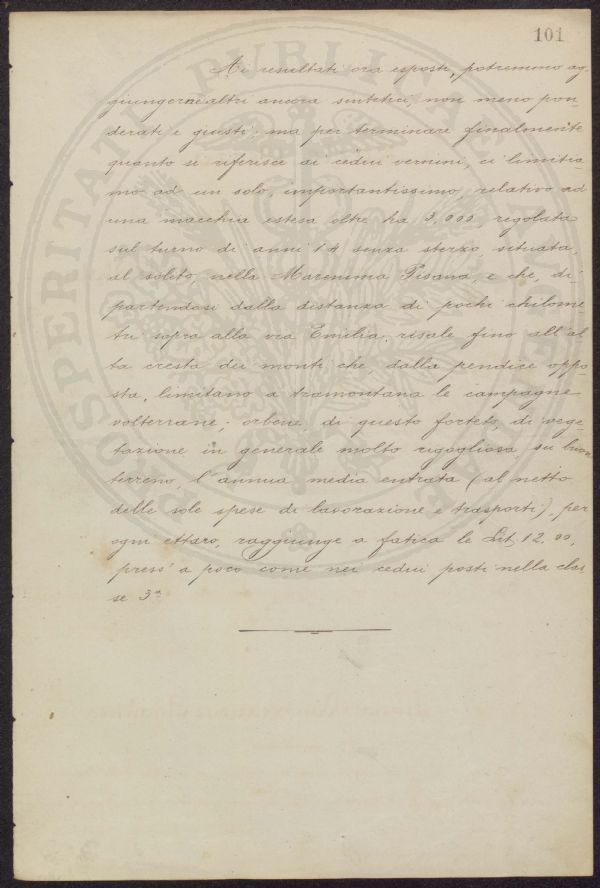 101
Ai resultati ora esposti, potremmo ag-
giungerne altri ancora sintetici, non meno pon-
derati e giusti; ma per terminare finalmente
quanto si riferisce ai cedui vernini, ci limitia-
mo ad un solo, importantissimo, relativo ad
una macchia estesa oltre ha 3,000, regolata
sul turno di anni 14 senza sterzo, situata,
al solito, nella Maremma Pisana, e che, di-
partendosi dalla distanza di pochi chilome-
tri sopra alla via Emilia, risale fino all'al
ta cresta dei monti che, dalla pendice oppo-
sta, limitano a tramontana le campagne
volterrane; orbene, di questo forteto, di vege-
tazione in generale molto rigogliosa su buon
terreno, l'annua media entrata (al netto
delle sole spese di lavorazione e trasporti), per
ogni ettaro, raggiunge a fatica le Lit, 12,00,
press' a poco come nei cedui posti nella clas
se 3ª
PROSPERITATI PUBLICAE